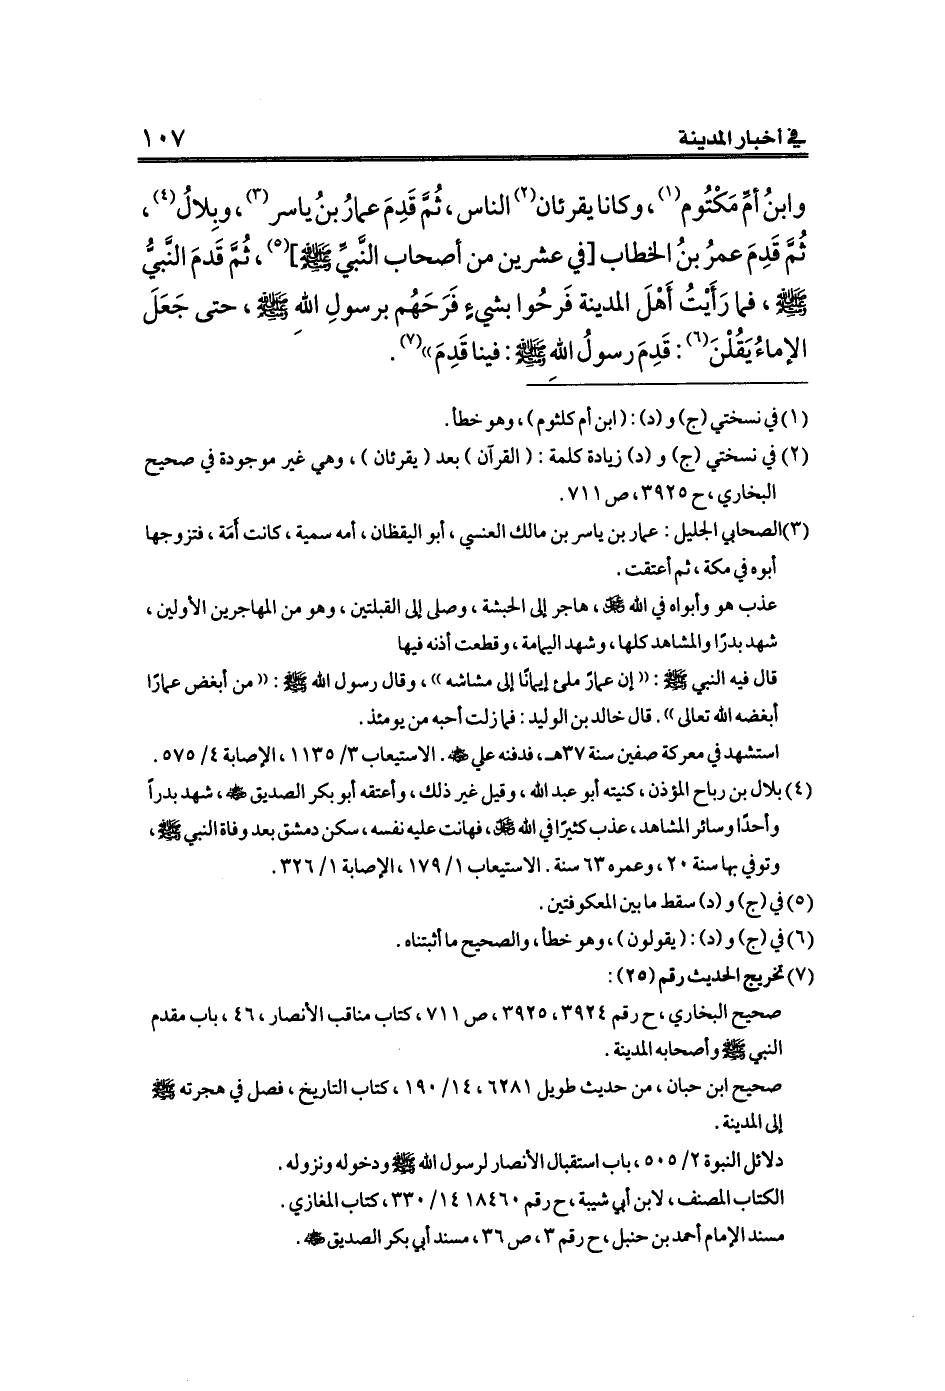 في أخبار المدينة ١٠٧
وابنُ أمِّ مَكْتُوم(١)، وكانا يقرئان(٢) الناس، ثُمَّ قَدِمَ عمارُ بنُ ياسر(٣)، وبِلالُ(٤)،
ثُمَّ قَدِمَ عمرُ بنُ الخطاب [في عشرين من أصحاب النَّبيِّ ﷺ](٥)، ثُمَّ قَدمَ النَّبيُّ
ﷺ، فما رَأَيْتُ أَهْلَ المدينة فَرحُوا بشيءٍ فَرَحَهُم برسولِ اللهِ ﷺ، حتى جَعَلَ
الإماءُ يَقُلْنَ(٦): قَدِمَ رسولُ اللهِ ﷺ: فينا قَدِمَ»(٧).
(١) في نسختي (ج) و (د): (ابن أم كلثوم)، وهو خطأ.
(٢) في نسختي (ج) و (د) زيادة كلمة: (القرآن) بعد (يقرئان)، وهي غير موجودة في صحيح
البخاري، ح ٣٩٢٥، ص ٧١١.
(٣) الصحابي الجليل: عمار بن ياسر بن مالك العنسي، أبو اليقظان، أمه سمية، كانت أَمَة، فتزوجها
أبوه في مكة، ثم أعتقت.
عذب هو وأبواه في الله ﷻ، هاجر إلى الحبشة، وصلى إلى القبلتين، وهو من المهاجرين الأولين،
شهد بدرًا والمشاهد كلها، وشهد اليمامة، وقطعت أذنه فيها
قال فيه النبي ﷺ: «إن عمارً ملئ إيمانًا إلى مشاشه»، وقال رسول الله ﷺ: «من أبغض عمارًا
أبغضه الله تعالى». قال خالد بن الوليد: فما زلت أحبه من يومئذ.
استشهد في معركة صفين سنة ٣٧هـ، فدفنه علي ﵁. الاستيعاب ٣/ ١١٣٥، الإصابة ٤/ ٥٧٥.
(٤) بلال بن رباح المؤذن، كنيته أبو عبد الله، وقيل غير ذلك، وأعتقه أبو بكر الصديق ﵁، شهد بدراً
وأحدًا وسائر المشاهد، عذب كثيرًا في الله ﷻ، فهانت عليه نفسه، سكن دمشق بعد وفاة النبي ﷺ،
وتوفي بها سنة ٢٠، وعمره ٦٣ سنة. الاستيعاب ١/ ١٧٩، الإصابة ١/ ٣٢٦.
(٥) في (ج) و (د) سقط ما بين المعكوفتين.
(٦) في (ج) و (د): (يقولون)، وهو خطأ، والصحيح ما أثبتناه.
(٧) تخريج الحديث رقم (٢٥):
صحيح البخاري، ح رقم ٣٩٢٤، ٣٩٢٥، ص ٧١١، كتاب مناقب الأنصار، ٤٦، باب مقدم
النبي ﷺ وأصحابه المدينة.
صحيح ابن حبان، من حديث طويل ٦٢٨١، ١٤/ ١٩٠، كتاب التاريخ، فصل في هجرته ﷺ
إلى المدينة.
دلائل النبوة ٢/ ٥٠٥، باب استقبال الأنصار لرسول الله ﷺ ودخوله ونزوله.
الكتاب المصنف، لابن أبي شيبة، ح رقم ١٨٤٦٠ ١٤/ ٣٣٠، كتاب المغازي.
مسند الإمام أحمد بن حنبل، ح رقم ٣، ص ٣٦، مسند أبي بكر الصديق ﵁.